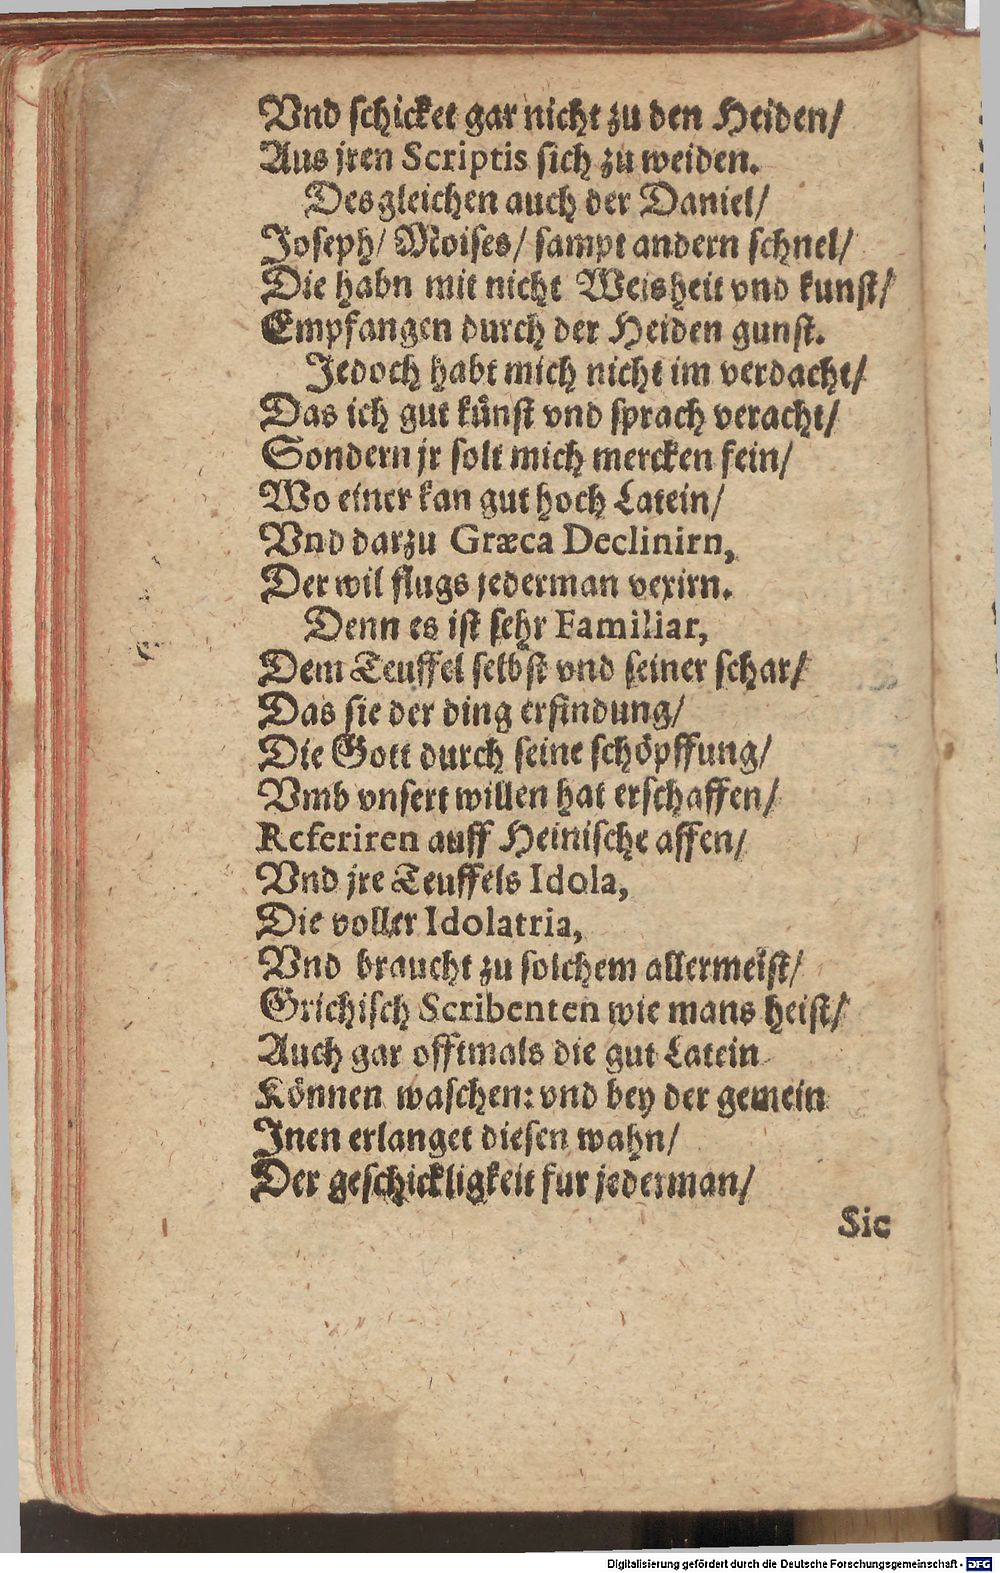 Vnd schicket gar nicht zu den Heiden/
Aus jren Scriptis sich zu weiden.
Desgleichen auch der Daniel/
Joseph/ Moises/ sampt andern schnel/
Die habn mit nicht Weisheit vnd kunst/
Empfangen durch der Heiden gunst.
Jedoch habt mich nicht im verdacht/
Das ich gut künst vnd sprach veracht/
Sondern jr solt mich mercken fein/
Wo einer kan gut hoch Latein/
Vnd darzu Græca Declinirn,
Der wil flugs jederman vexirn.
Denn es ist sehr Familiar,
Dem Teuffel selbst vnd seiner schar/
Das sie der ding erfindung/
Die Gott durch seine schöpffung/
Vmb vnsert willen hat erschaffen/
Referiren auff Heinische affen/
Vnd jre Teuffels Idola,
Die voller Idolatria,
Vnd braucht zu solchem allermeist/
Grichisch Scribenten wie mans heist/
Auch gar offtmals die gut Latein
Können waschen: vnd bey der gemein
Jnen erlanget diesen wahn/
Der geschickligkeit fur jederman/
Sic
Digitalisierung gefördert durch die Deutsche Forschungsgemeinschaft - DFG